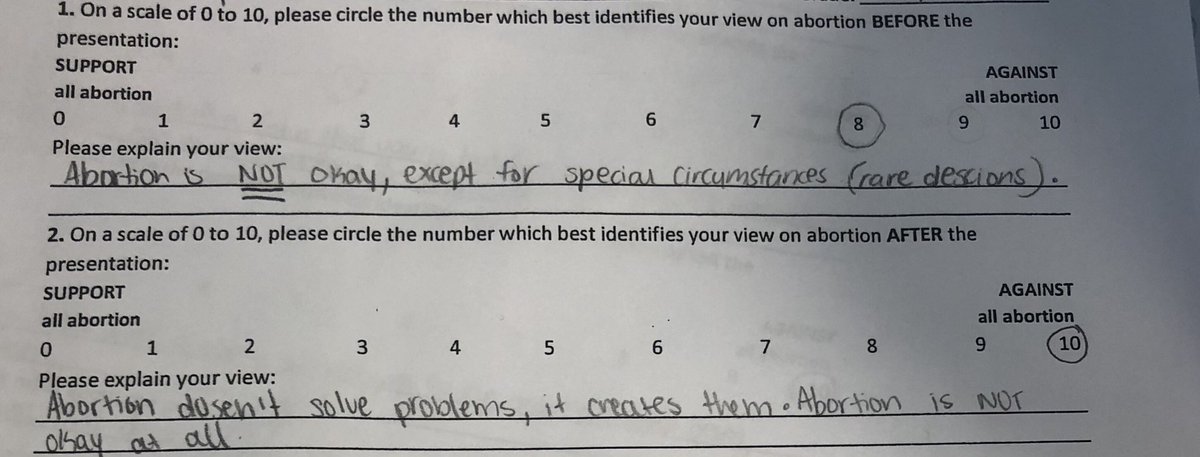 1. On a scale of 0 to 10, please circle the number which best identifies your view on abortion BEFORE the
presentation:
SUPPORT AGAINST
all abortion all abortion
0 1 2 3 4 5 6 7 8 9 10
Please explain your view:
Abortion is NOT okay, except for special circumstances (rare descions).
2. On a scale of 0 to 10, please circle the number which best identifies your view on abortion AFTER the
presentation:
SUPPORT AGAINST
all abortion all abortion
0 1 2 3 4 5 6 7 8 9 10
Please explain your view:
Abortion dosen't solve problems, it creates them. Abortion is NOT
okay at all.